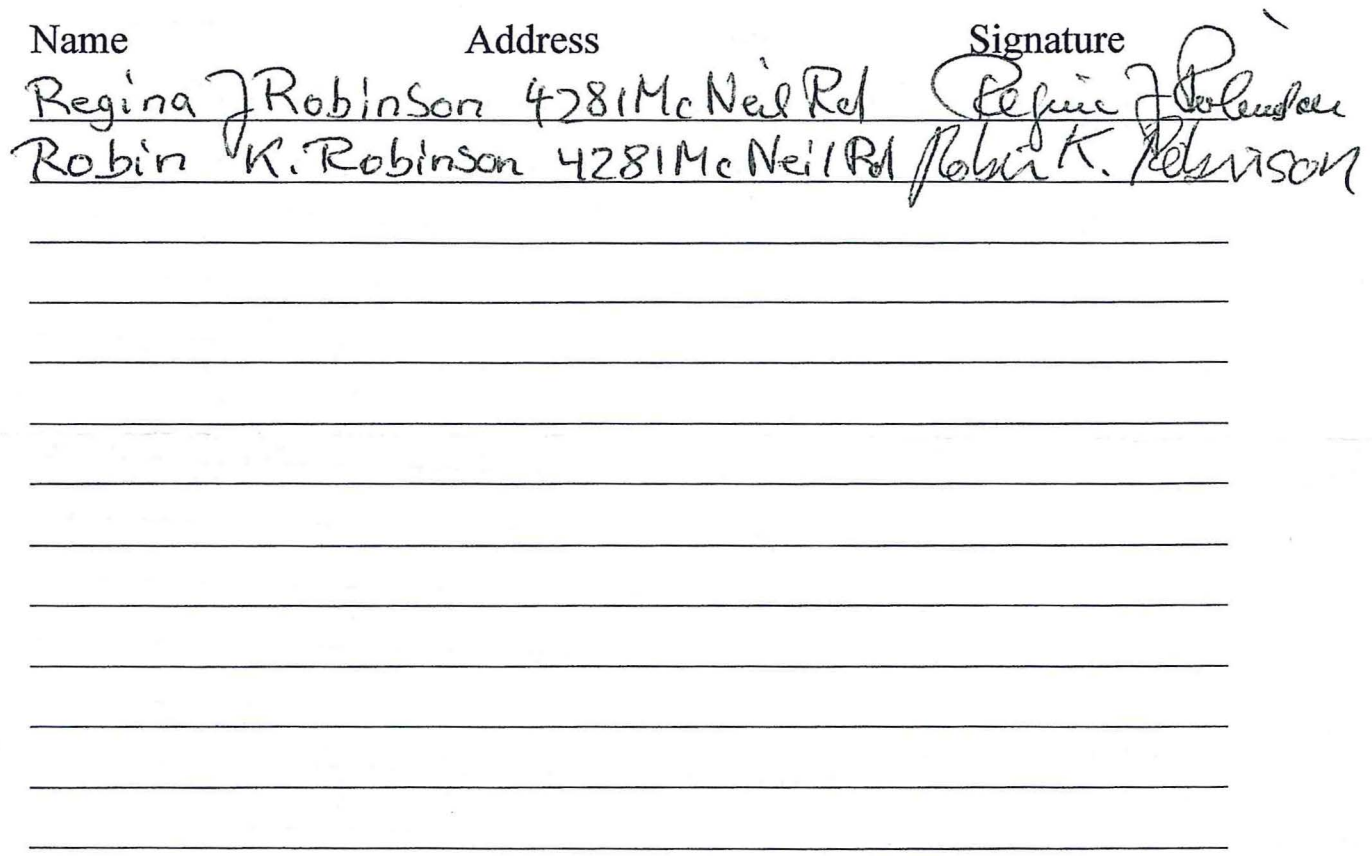 Name Address Signature
Regina J Robinson 4281 Mc Neil Rd Regina J Robinson
Robin K. Robinson 4281 Mc Neil Rd Robin K. Robinson